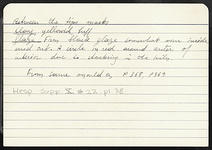 Between the two masks
Clay: yellowish buff
Glaze: Firm black glaze somewhat worn inside
and out. A circle in red around center of
interior due to stacking in the kiln.
From same mould as P 368, P 369
Hesp Supp X # 22 pl 38